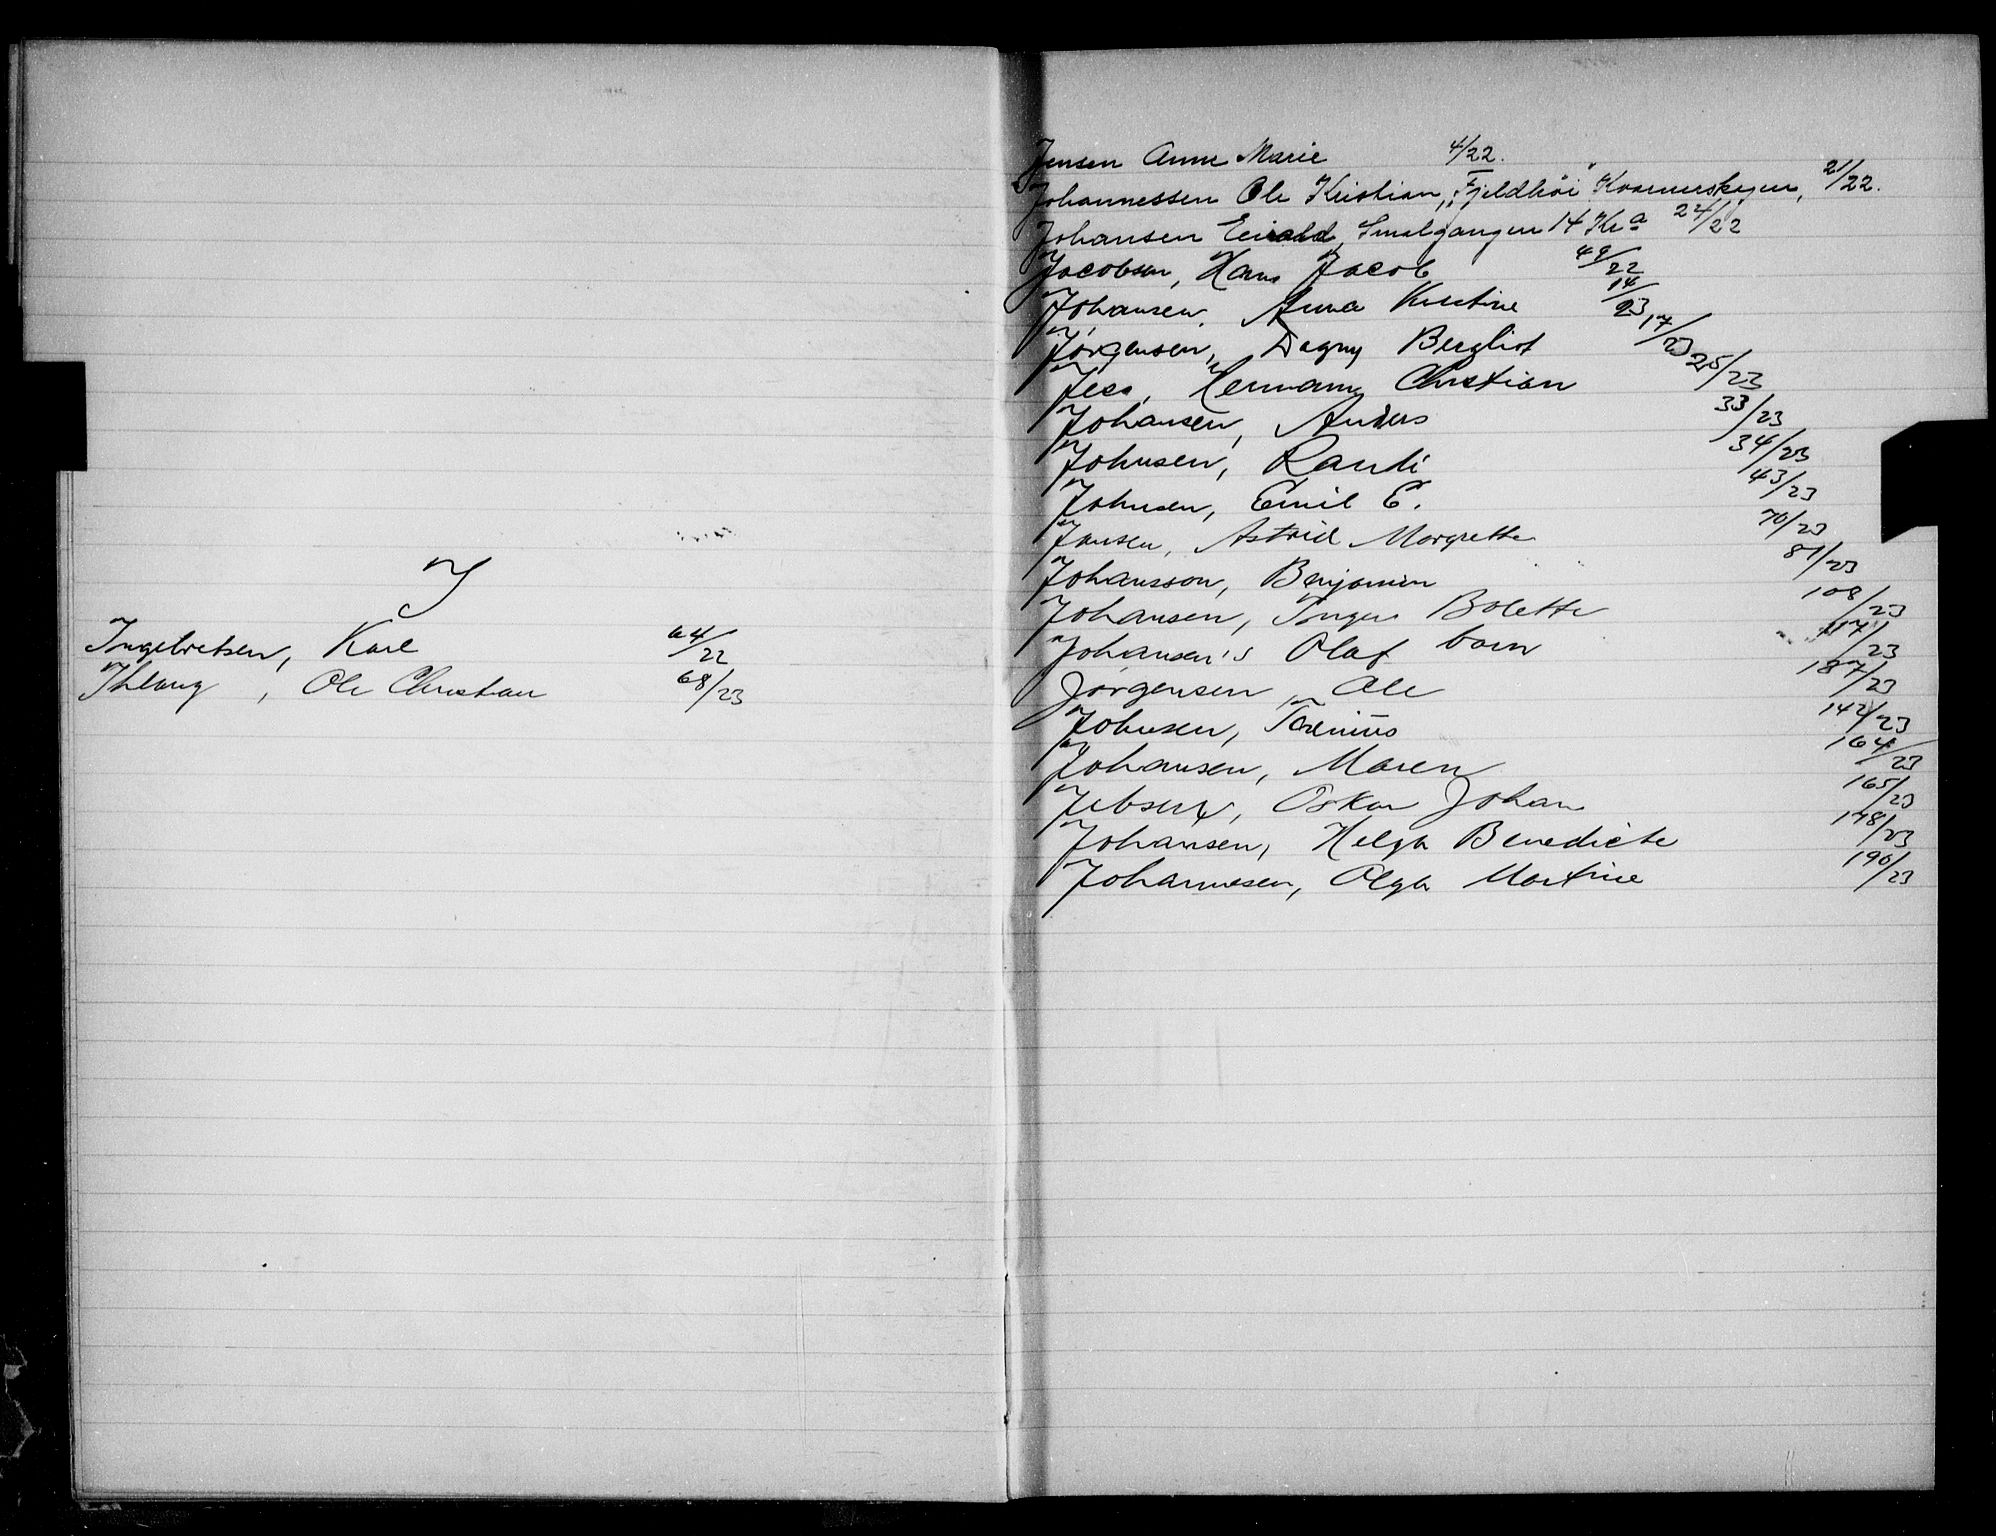 I
Ingebretsen, Karl 64/22
Ihlang, Ole Christian 68/23
Jensen Anne Marie 4/22.
Johannessen Ole Kristian, "Fjeldhöi" Kværnerskogen, 21/22.
Johansen Eivald, Smalgangen 14 Kr.a 24/22
Jacobsen, Hans Jacob 49/22
Johansen, Anna Kristine 14/23
Jörgensen, Dagny Bergliot 17/23
Jess, Hermann Christian 25/23
Johansen, Anders 33/23
Johnsen, Randi 34/23
Johnsen, Emil E. 43/23
Jansen, Astrid Margrethe 70/23
Johansson, Benjamin 81/23
Johansen, Inger Bolette 108/23
Johansen's Olaf barn 117/23
Jörgensen, Ole 137/23
Johnsen, 142/23
Johansen, Maren 164/23
Jebsen, Oskar Johan 165/23
Johansen, Helga Benedicte 178/23
Johannesen, Olga Martine 190/23